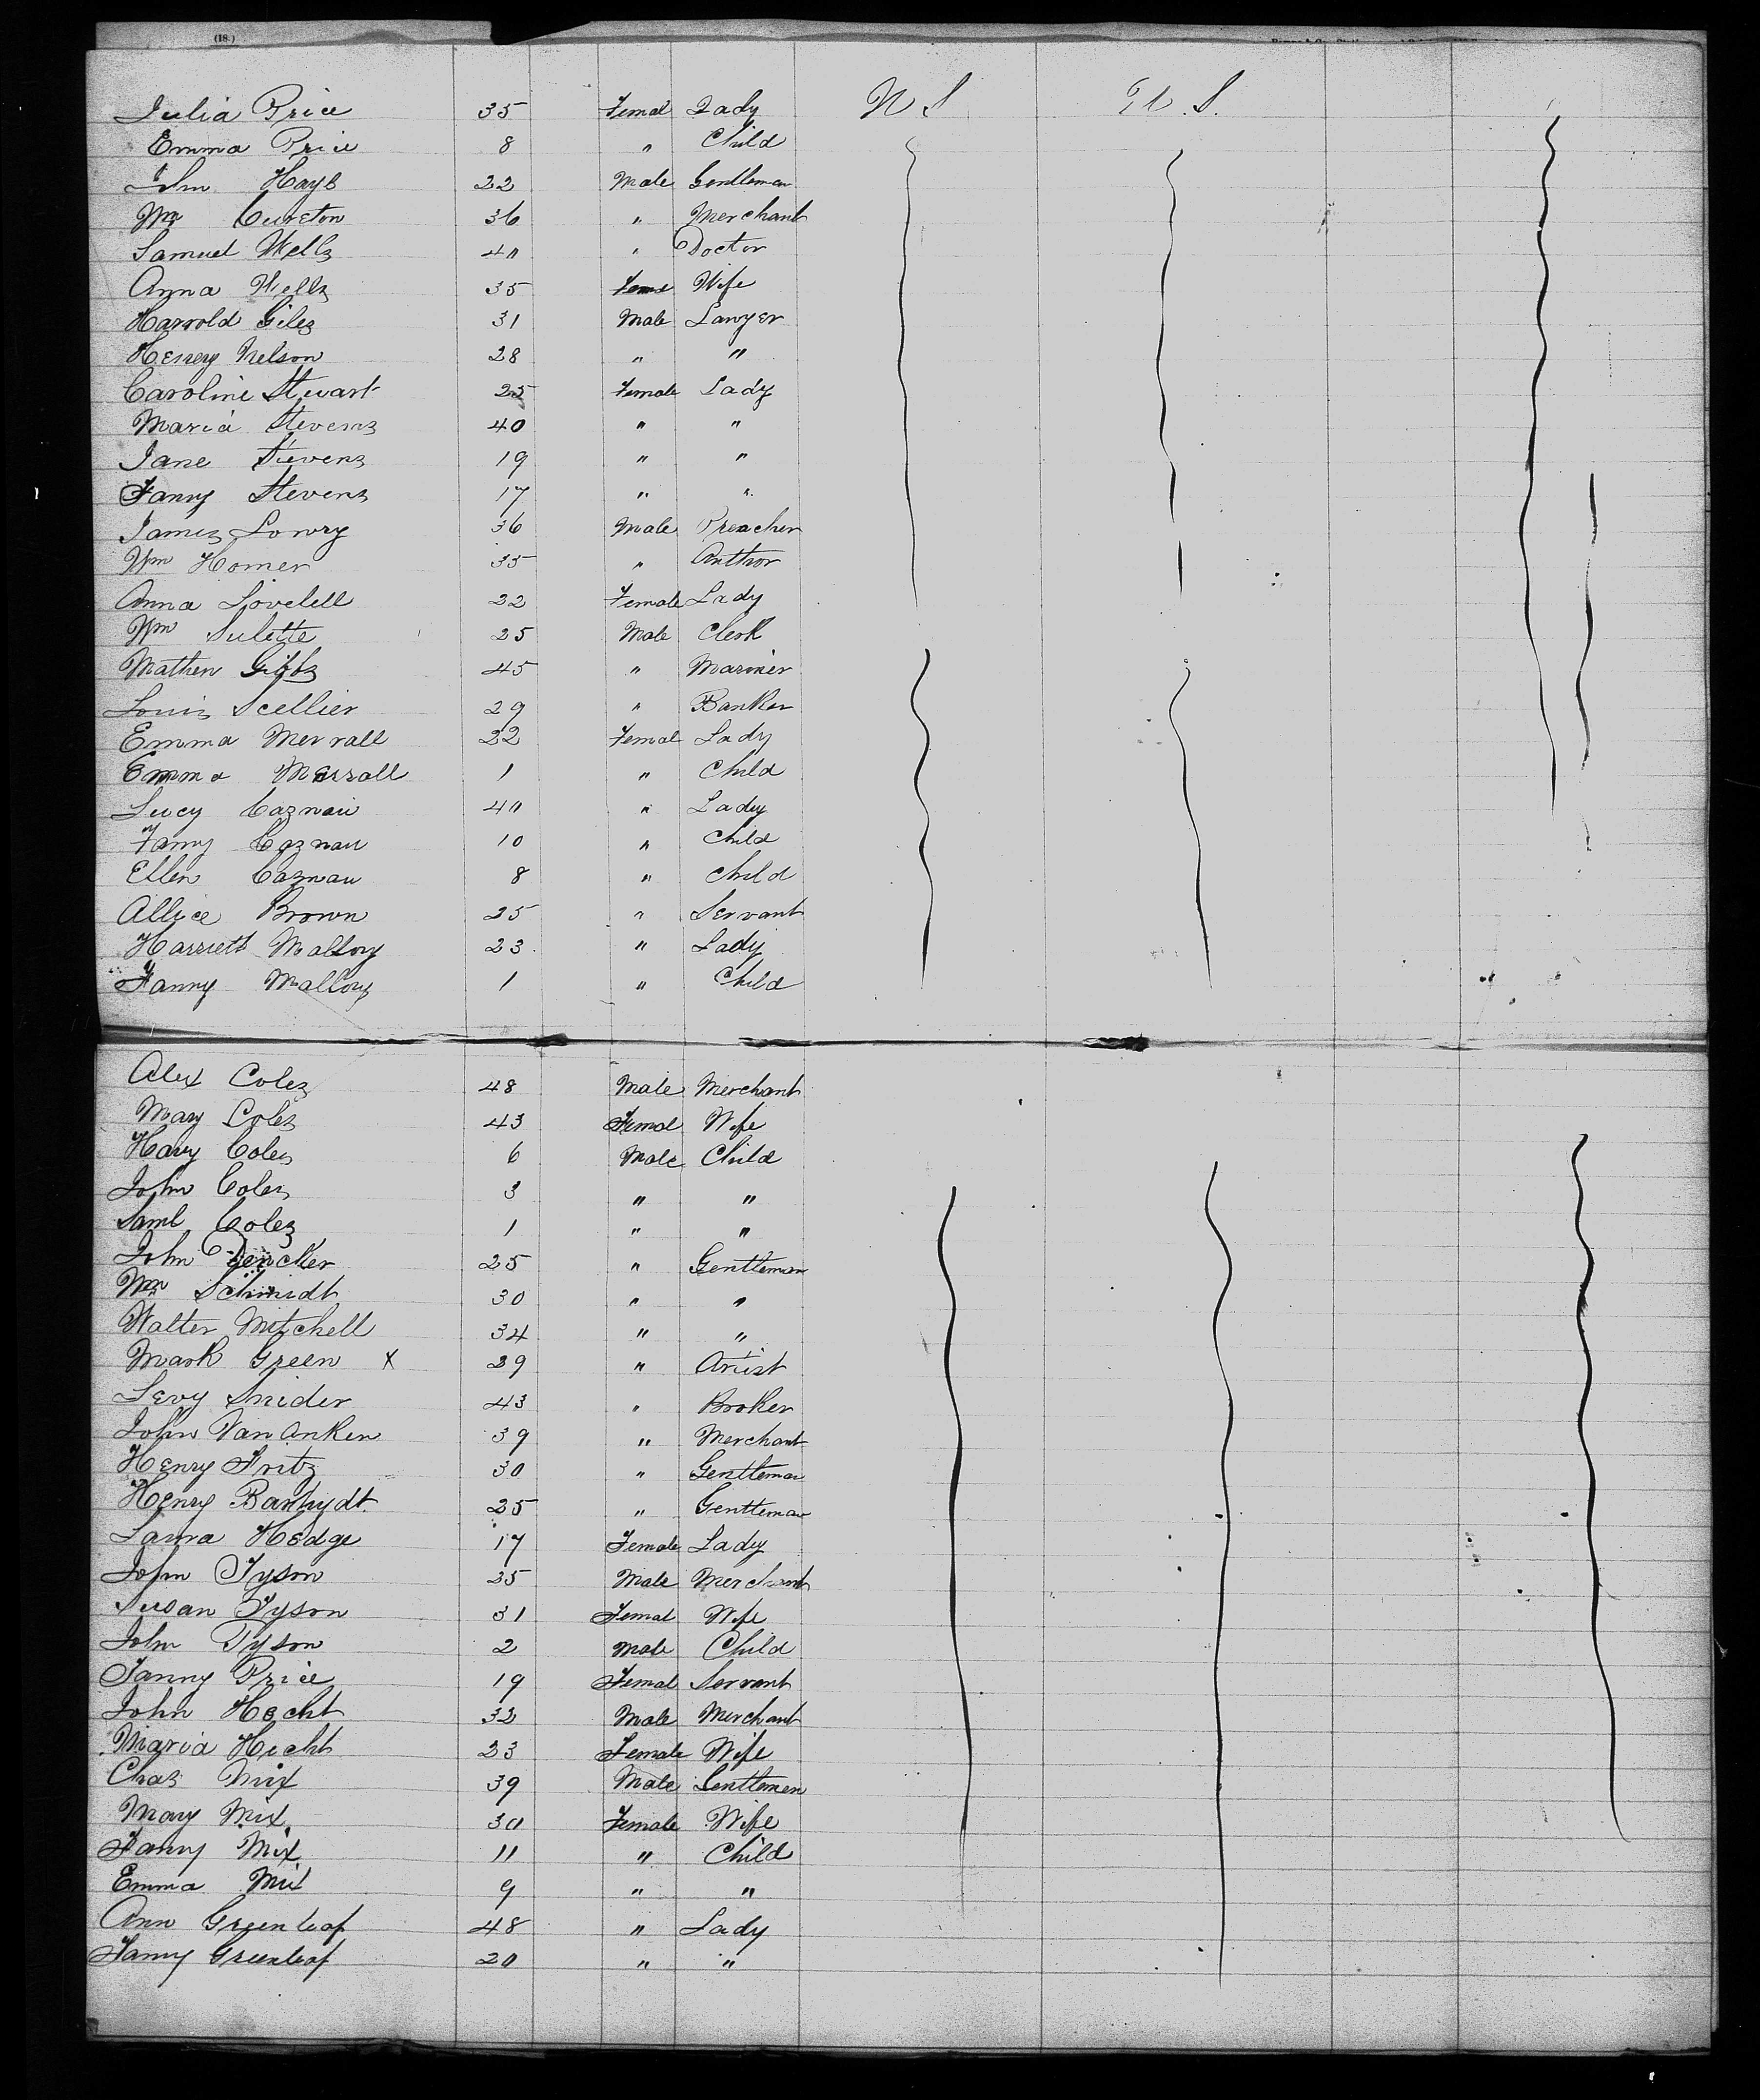 (18.)
Julia Price 35 Femal Lady U S U. S.
Emma Price 8 " Child
John Hays 22 Male Gentleman
Wm Cureton 36 " Merchant
Samuel Wells 40 " Doctor
Anna Wells 35 Wife
Harrold Giles 31 Male Lawyer
Henry Nelson 28 " "
Caroline Stewart 25 Female Lady
Maria Stevens 40 " "
Jane Stevens 19 " "
Fanny Stevens 17 " "
James Lowry 36 Male Preacher
Wm Homer 35 " Author
Anna Lovelell 22 Female Lady
Wm Sulette 25 Male Clerk
Mathew Gibbs 45 " Mariner
Louis Scellier 29 " Banker
Emma Merrall 22 Femal Lady
Emma Merrall 1 " Child
Lucy Caznau 40 " Lady
Fanny Caznau 10 " Child
Ellen Caznau 8 " Child
Allice Brown 25 " Servant
Harriett Mallory 23 " Lady
Fanny Mallory 1 " Child
Alex Coles 48 Male Merchant
Mary Coles 43 Femal Wife
Harry Coles 6 Male Child
John Coles 3 " "
Saml Coles 1 " "
John Dencker 25 " Gentleman
Wm Schmidt 30 " "
Walter Mitchell 34 " "
Mark Green X 29 " Artist
Levy Snider 43 " Broker
John Van Anken 39 " Merchant
Henry Fritz 30 " Gentleman
Henry Banhydt 25 " Gentleman
Laura Hedge 17 Female Lady
John Tyson 35 Male Merchant
Susan Tyson 31 Femal Wife
John Tyson 2 Male Child
Fanny Price 19 Femal Servant
John Hecht 32 Male Merchant
Maria Hecht 23 Female Wife
Chas Mix 39 Male Gentlemen
Mary Mix 30 Female Wife
Fanny Mix 11 " Child
Emma Mix 9 " "
Ann Greenleaf 48 " Lady
Fanny Greenleaf 20 " "